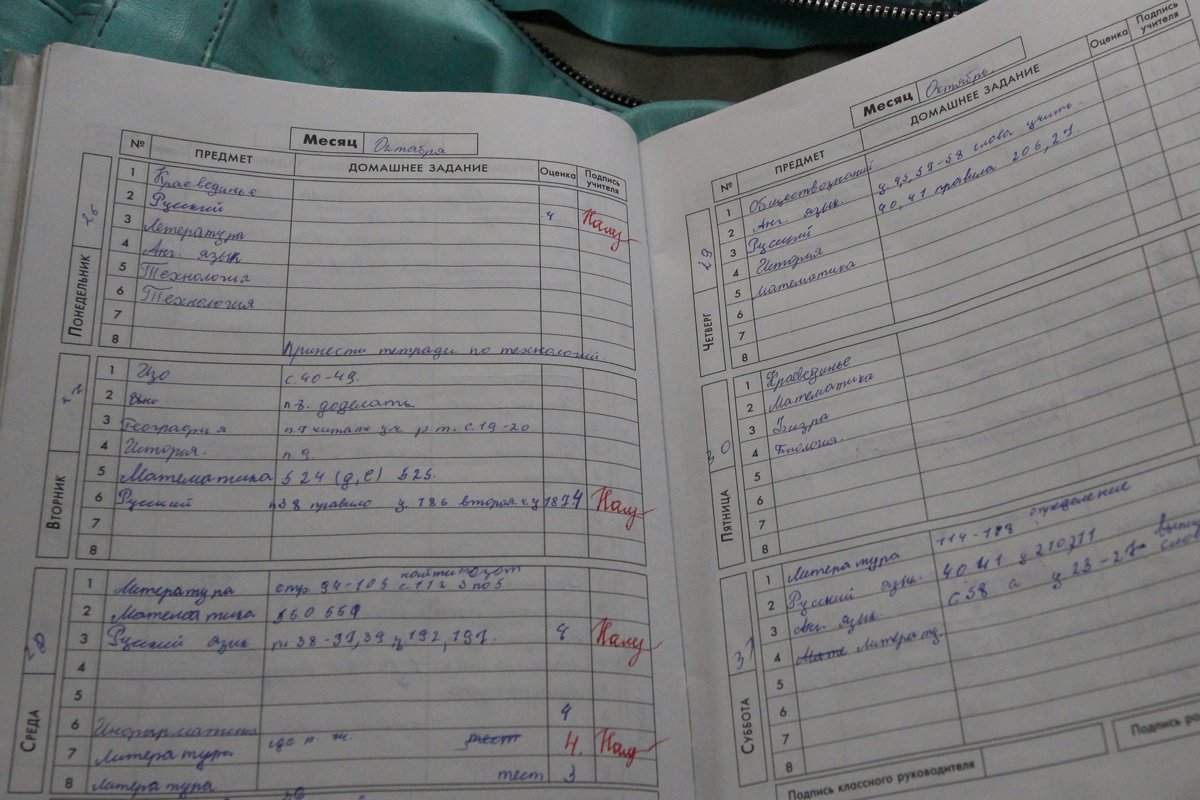 Месяц Октября
№ ПРЕДМЕТ ДОМАШНЕЕ ЗАДАНИЕ Оценка Подпись учителя
ПОНЕДЕЛЬНИК
1 Краевединье
2 Русский 4
3 Летература
4 Анг. язык
5 Технология
6 Технология
7
8 Принести тетради по технологий.
ВТОРНИК
1 Изо с.40-49.
2 доделать
3 География читать с.19-20
4 История. п.9.
5 Математика 524 (д,е) 525.
6 Русский п38 правило у.186 вторая ч.у 187 4
7
8
28 СРЕДА
1 Литература стр. 94-105 найти с.112
2 Матемотика 560 561
3 Русский язик п 38-39,39 у 192, 191. 4
4
5
6 Информатика 4
7 Литература тест 4.
8 Литература тест 3
Месяц Октябрь.
№ ПРЕДМЕТ ДОМАШНЕЕ ЗАДАНИЕ Оценка Подпись учителя
29 ЧЕТВЕРГ
1 Обществознаний
2 Анг. язык. 57-58 слова учить.
3 Русский 40, 41 правила 206, 21
4 История
5 математика
6
7
8
30 ПЯТНИЦА
1 Краевединье
2 Математика
3 Физра
4 Биология.
5
6
7
8
31 СУББОТА
1 Литература 114-118 определение
2 Русский язык. 40 41 у 210,211
3 Анг. язык. с 58 а у 23-27
4 Мате Литерату.
5
6
7
8
Подпись классного руководителя
Подпись